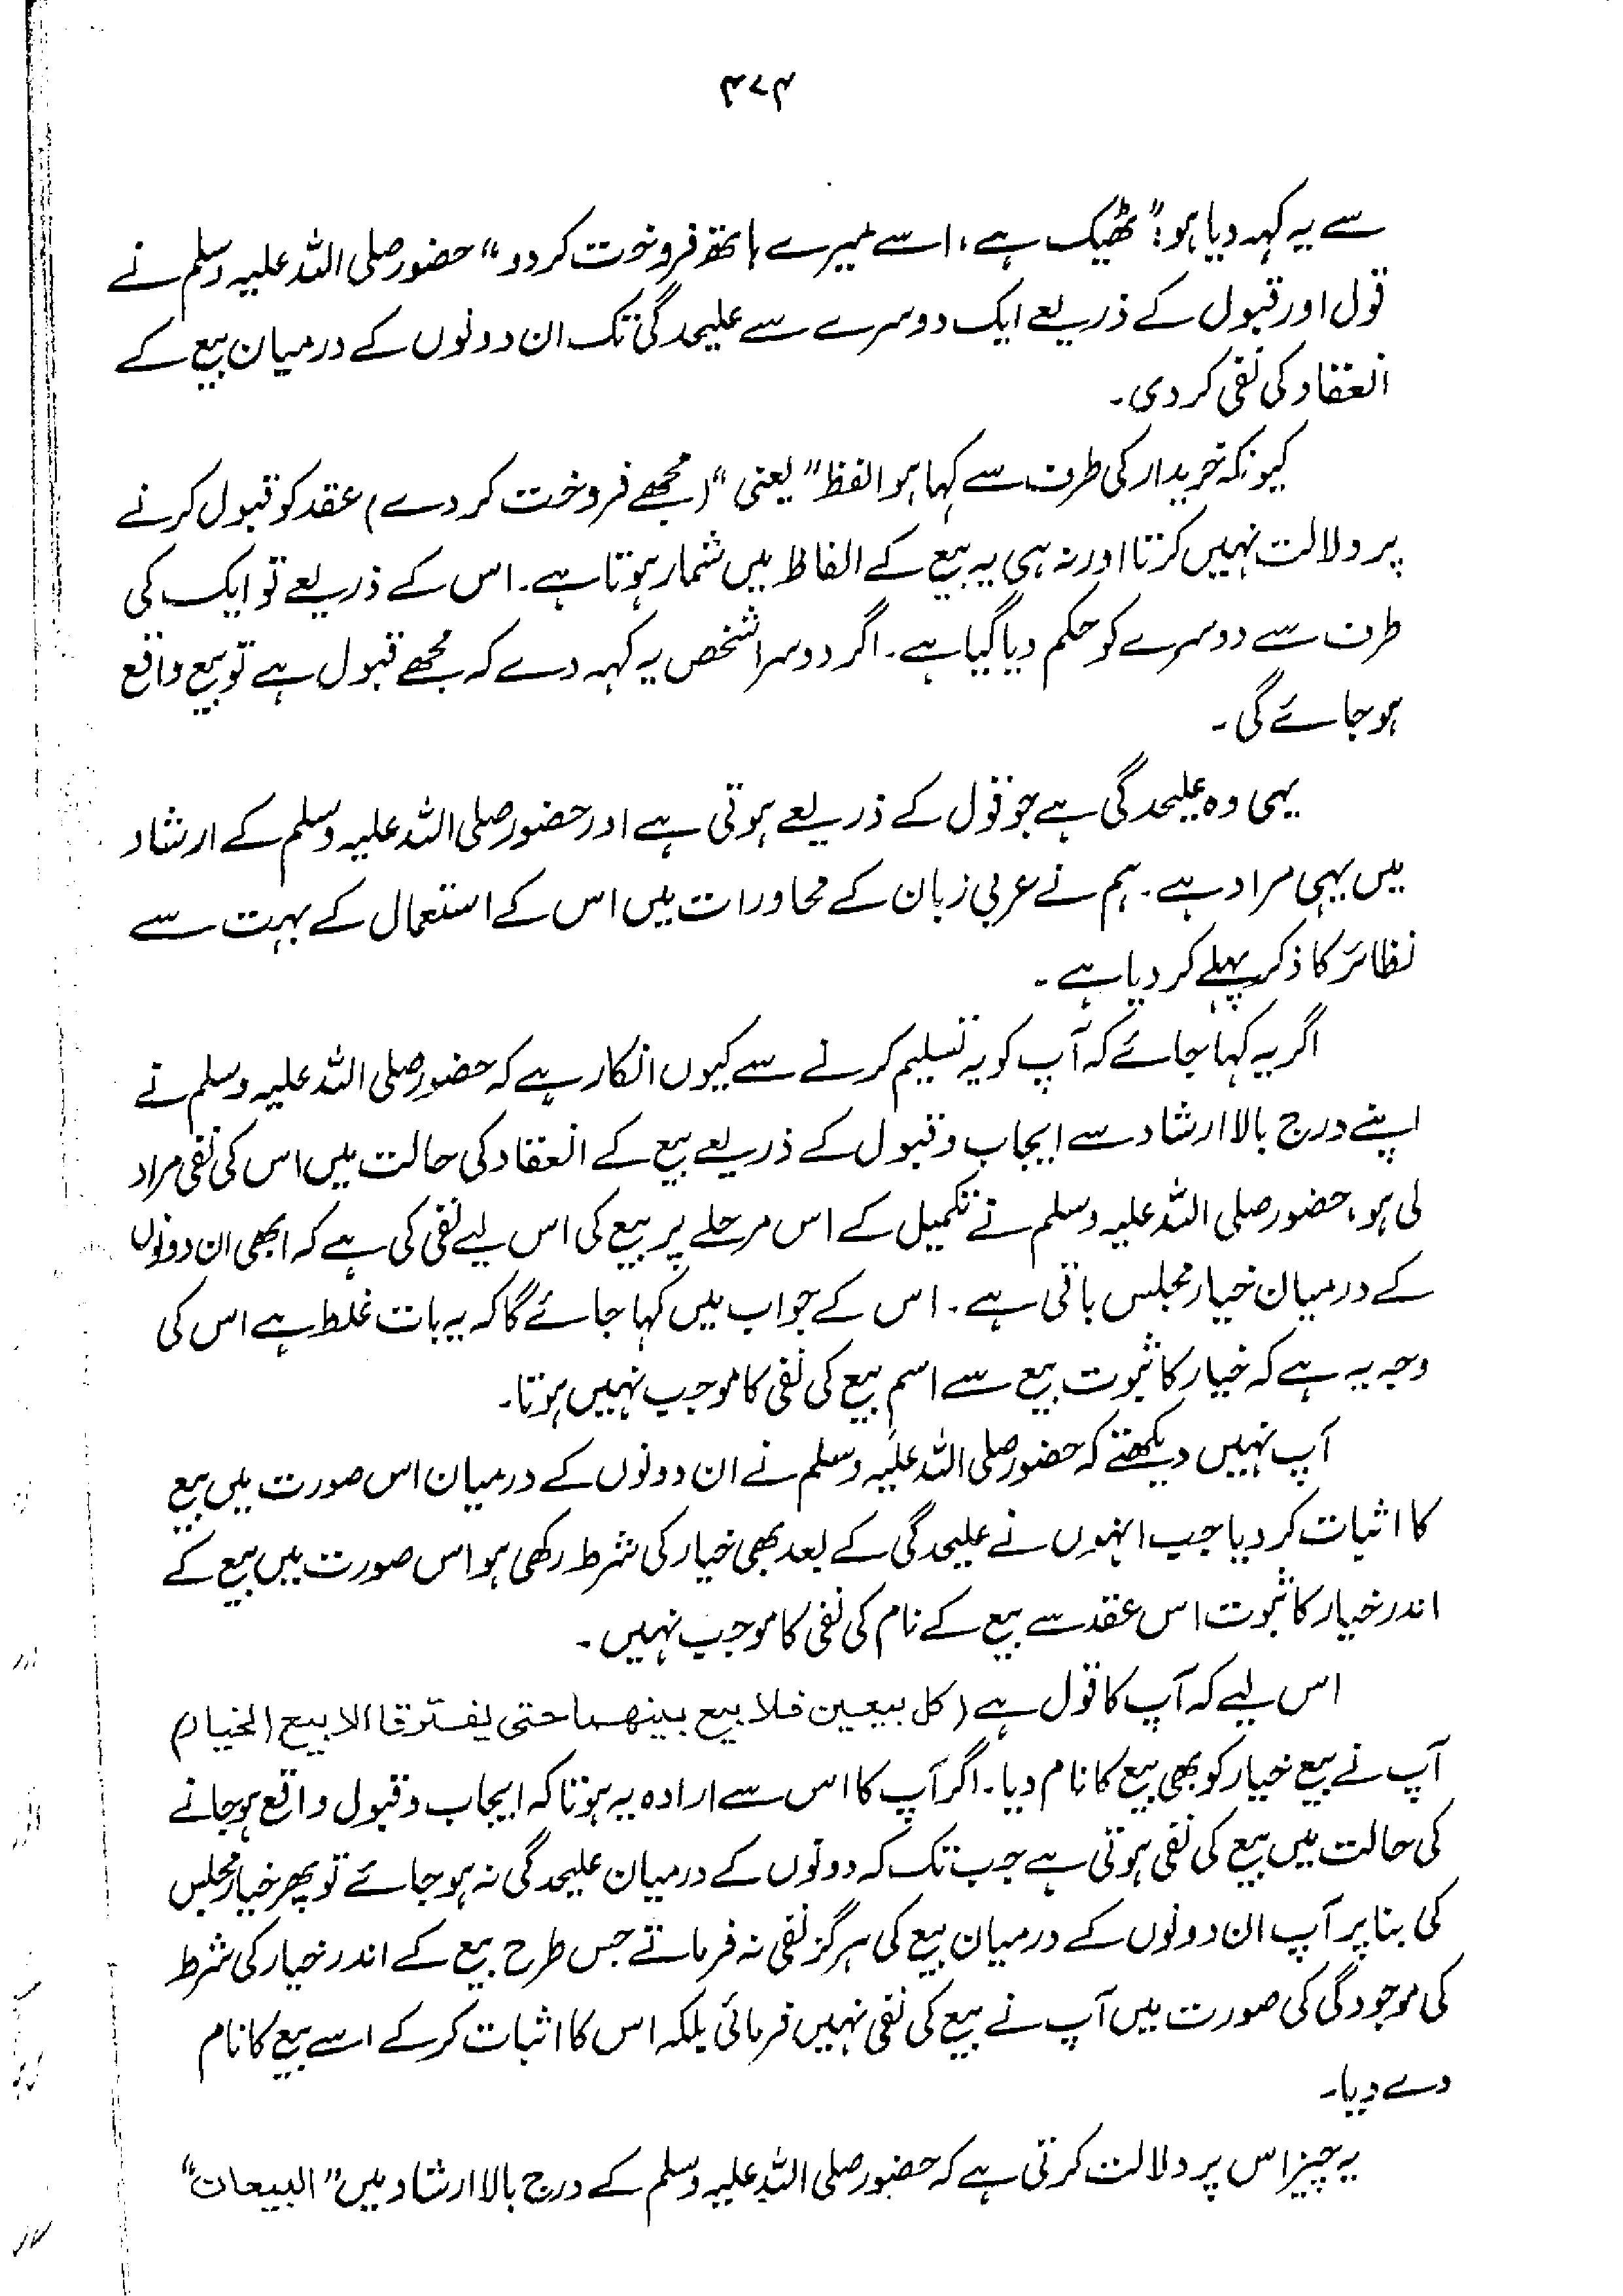 ۴۷۴
سے یہ کہہ دیا ہو: "ٹھیک ہے، اسے میرے ہاتھ فروخت کر دو" حضور صلی اللہ علیہ وسلم نے
قول اور قبول کے ذریعے ایک دوسرے سے علیحدگی تک ان دونوں کے درمیان بیع کے
انعقاد کی نفی کر دی۔
کیونکہ خریدار کی طرف سے کہا ہوا لفظ "یعنی" (مجھے فروخت کر دے) عقد کو قبول کرنے
پر دلالت نہیں کرتا اور نہ ہی یہ بیع کے الفاظ میں شمار ہوتا ہے۔ اس کے ذریعے تو ایک کی
طرف سے دوسرے کو حکم دیا گیا ہے۔ اگر دوسرا شخص یہ کہہ دے کہ مجھے قبول ہے تو بیع واقع
ہو جائے گی۔
یہی وہ علیحدگی ہے جو قول کے ذریعے ہوتی ہے اور حضور صلی اللہ علیہ وسلم کے ارشاد
میں یہی مراد ہے۔ ہم نے عربی زبان کے محاورات میں اس کے استعمال کے بہت سے
نظائر کا ذکر پہلے کر دیا ہے۔
اگر یہ کہا جائے کہ آپ کو یہ تسلیم کرنے سے کیوں انکار ہے کہ حضور صلی اللہ علیہ وسلم نے
اپنے درج بالا ارشاد سے ایجاب و قبول کے ذریعے بیع کے انعقاد کی حالت میں اس کی نفی مراد
لی ہو، حضور صلی اللہ علیہ وسلم نے تکمیل کے اس مرحلے پر بیع کی اس لیے نفی کی ہے کہ ابھی ان دونوں
کے درمیان خیار مجلس باقی ہے۔ اس کے جواب میں کہا جائے گا کہ یہ بات غلط ہے اس کی
وجہ یہ ہے کہ خیار کا ثبوت بیع سے اسم بیع کی نفی کا موجب نہیں ہوتا۔
آپ نہیں دیکھتے کہ حضور صلی اللہ علیہ وسلم نے ان دونوں کے درمیان اس صورت میں بیع
کا اثبات کر دیا جب انہوں نے علیحدگی کے بعد بھی خیار کی شرط رکھی ہو اس صورت میں بیع کے
اندر خیار کا ثبوت اس عقد سے بیع کے نام کی نفی کا موجب نہیں۔
اس لیے کہ آپ کا قول ہے (کل بیعین فلا بیع بینھما حتی یفترقا الا بیع الخیار)
آپ نے بیع خیار کو بھی بیع کا نام دیا۔ اگر آپ کا اس سے ارادہ یہ ہوتا کہ ایجاب و قبول واقع ہو جانے
کی حالت میں بیع کی نفی ہوتی ہے جب تک کہ دونوں کے درمیان علیحدگی نہ ہو جائے تو پھر خیار مجلس
کی بنا پر آپ ان دونوں کے درمیان بیع کی ہرگز نفی نہ فرماتے جس طرح بیع کے اندر خیار کی شرط
کی موجودگی کی صورت میں آپ نے بیع کی نفی نہیں فرمائی بلکہ اس کا اثبات کر کے اسے بیع کا نام
دے دیا۔
یہ چیز اس پر دلالت کرتی ہے کہ حضور صلی اللہ علیہ وسلم کے درج بالا ارشاد میں "البیعان"